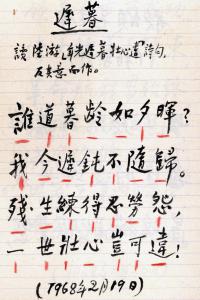 遲暮
讀陸游「身老遲暮壯心遣」詩句,
反其意而作。
誰道暮龄如夕暉?
我今遲鈍不隨歸。
殘生練得忍勞怨,
一世壯心豈可違!
(1968年2月19日)